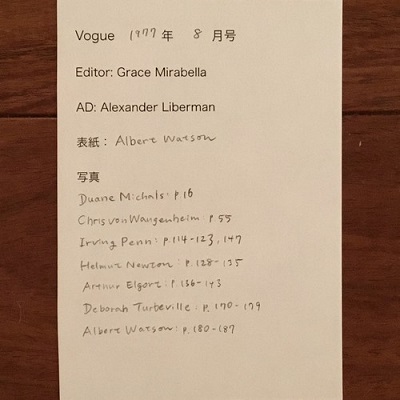 Vogue 1977 年 8 月号
Editor: Grace Mirabella
AD: Alexander Liberman
表紙： Albert Watson
写真
Duane Michals: p.16
Chris von Wangenheim: p.55
Irving Penn: p.114-123, 147
Helmut Newton: p.128-135
Arthur Elgort: p.136-143
Deborah Turbeville: p.170-179
Albert Watson: p.180-187